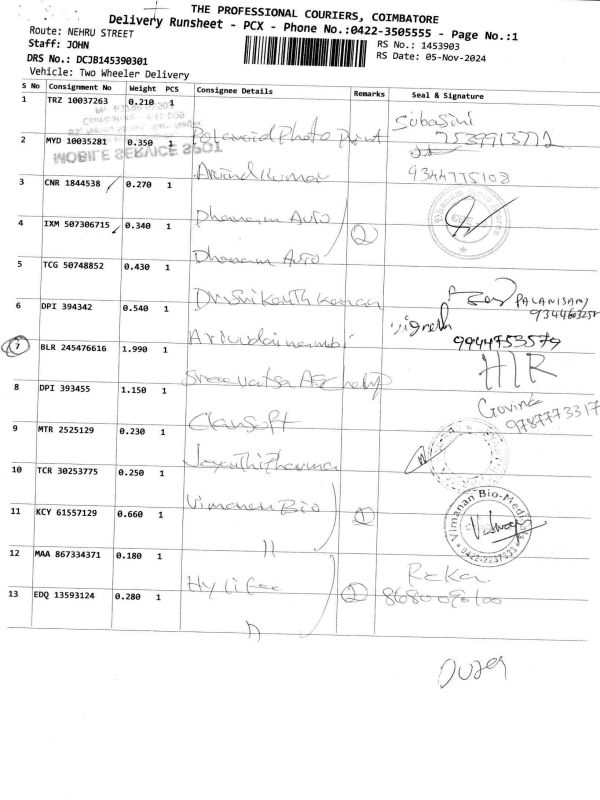 THE PROFESSIONAL COURIERS, COIMBATORE
Delivery Runsheet - PCX - Phone No.:0422-3505555 - Page No.:1
Route: NEHRU STREET
RS No.: 1453903
Staff: JOHN
RS Date: 05-Nov-2024
DRS No.: DCJB145390301
Vehicle: Two Wheeler Delivery
S No Consignment No Weight PCS Consignee Details Remarks Seal & Signature
1 TRZ 10037263 0.210 1 Subasini
Polaroid Photo Print 7539913772
2 MYD 10035281 0.350 1
MOBILE SERVICE SPOT
Arvind Kumar 9344775108
3 CNR 1844538 0.270 1
Dhanam Auto
4 IXM 507306715 0.340 1 2
Dhanam Auto
5 TCG 50748852 0.430 1
Dr Srikanth Kannan PALANISAMY
6 DPI 394342 0.540 1
Vignesh 9944753579
7 BLR 245476616 1.990 1
HIR
8 DPI 393455 1.150 1 Govind
9787773317
Clansoft
9 MTR 2525129 0.230 1
Jayanthi Pharma
10 TCR 30253775 0.250 1
Vimanan Bio Vimanan Bio-Medi
11 KCY 61557129 0.660 1 1
"
12 MAA 867334371 0.180 1
Hylifee
13 EDQ 13593124 0.280 1 2
"